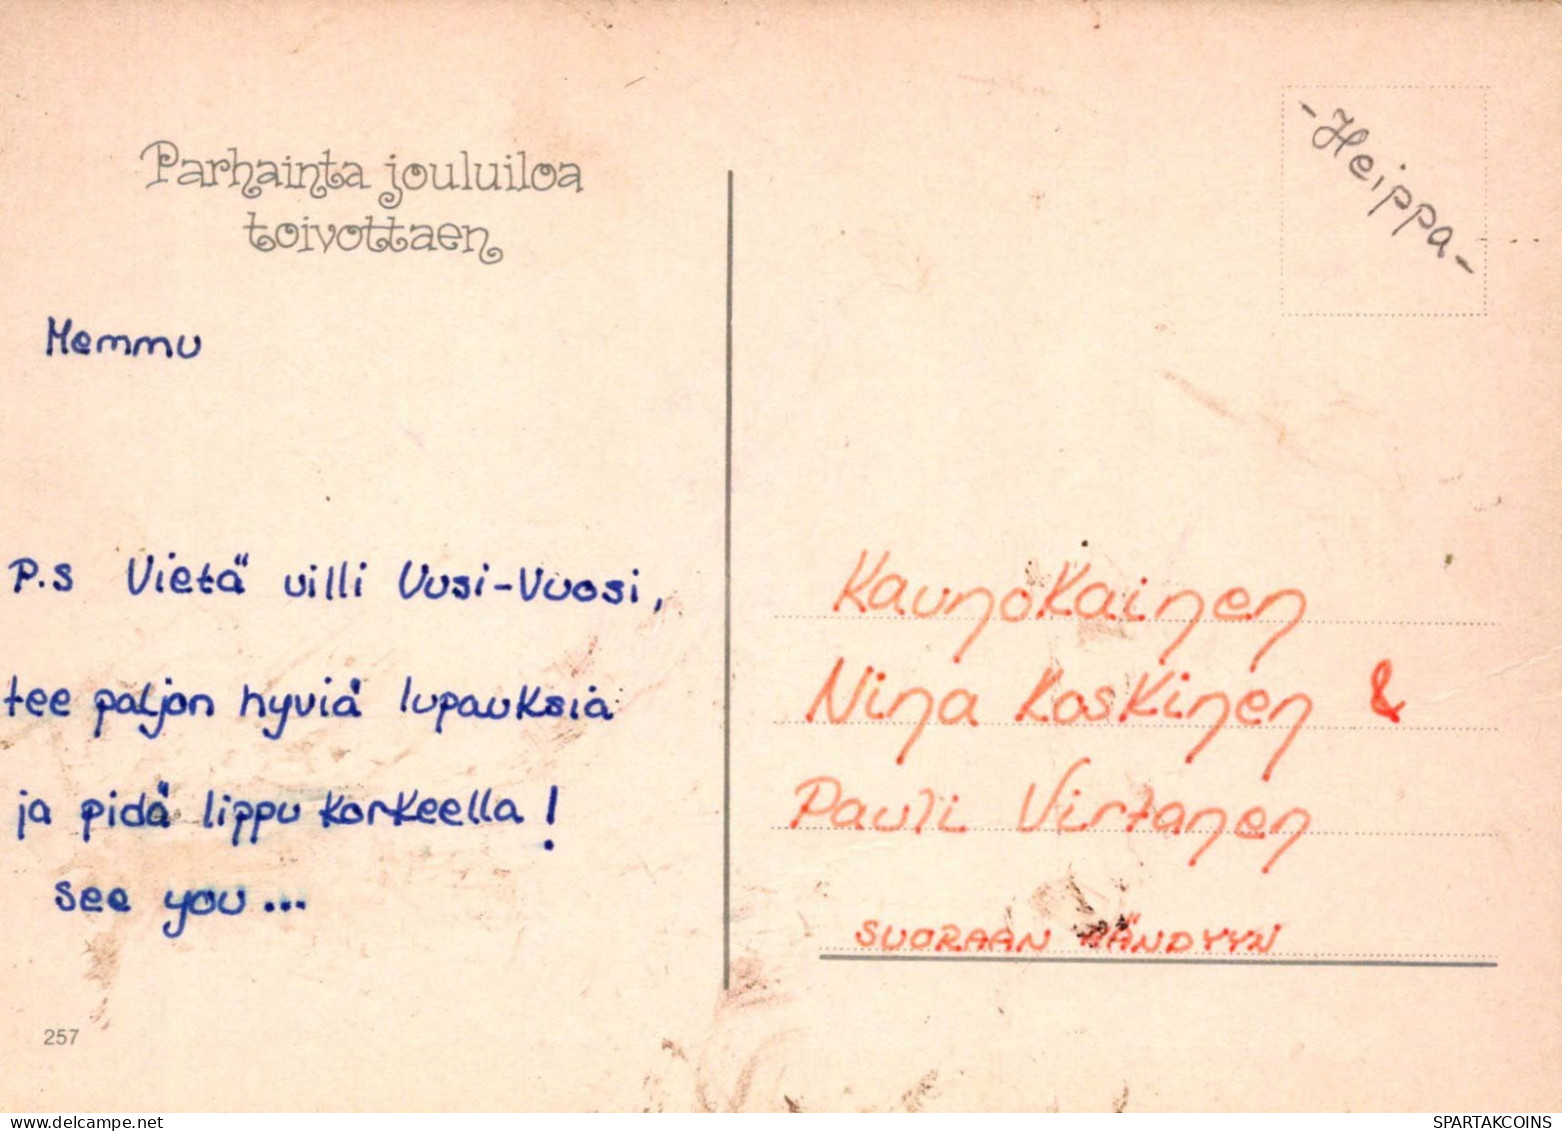 Parhainta jouluiloa
toivottaen
Memmu
P.s Vietä villi Uusi-Vuosi,
tee paljon hyviä lupauksia
ja pidä lippu korkeella!
see you...
257
-Heippa-
Kaunokainen
Nina Koskinen &
Pauli Virtanen
SUORAAN
SPARTAKCOINS